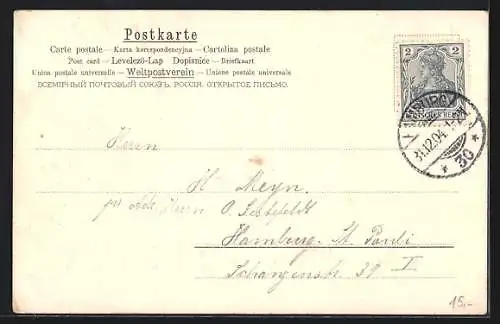 Postkarte
Carte postale — Karta korrespondencyjna — Cartolina postale
Post card — Levelező-Lap Dopisnice — Briefkaart
Union postale universelle — Weltpostverein — Unione postale universale
ВСЕМІРНЫЙ ПОЧТОВЫЙ СОЮЗЪ. РОССІЯ. ОТКРЫТОЕ ПИСЬМО.
2 2
HAMBURG
31.12.04
* 30 *
Herrn
H. Meyn.
Herrn O.
Hamburg. St. Pauli
39 I
15,-